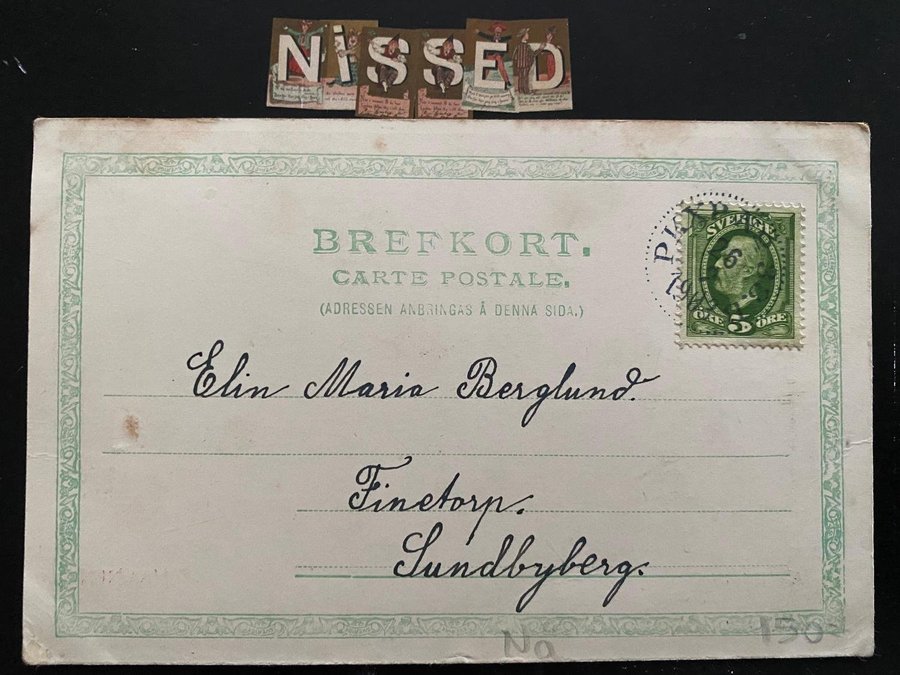 NISSED
BREFKORT.
CARTE POSTALE.
(ADRESSEN ANBRINGAS Å DENNA SIDA.)
SVERIGE
5
ÖRE ÖRE
Elin Maria Berglund.
Finetorp.
Sundbyberg.
No
150-